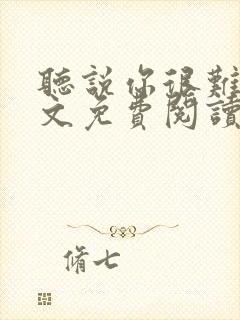 聽說你很難
文免費閱讀
脩七